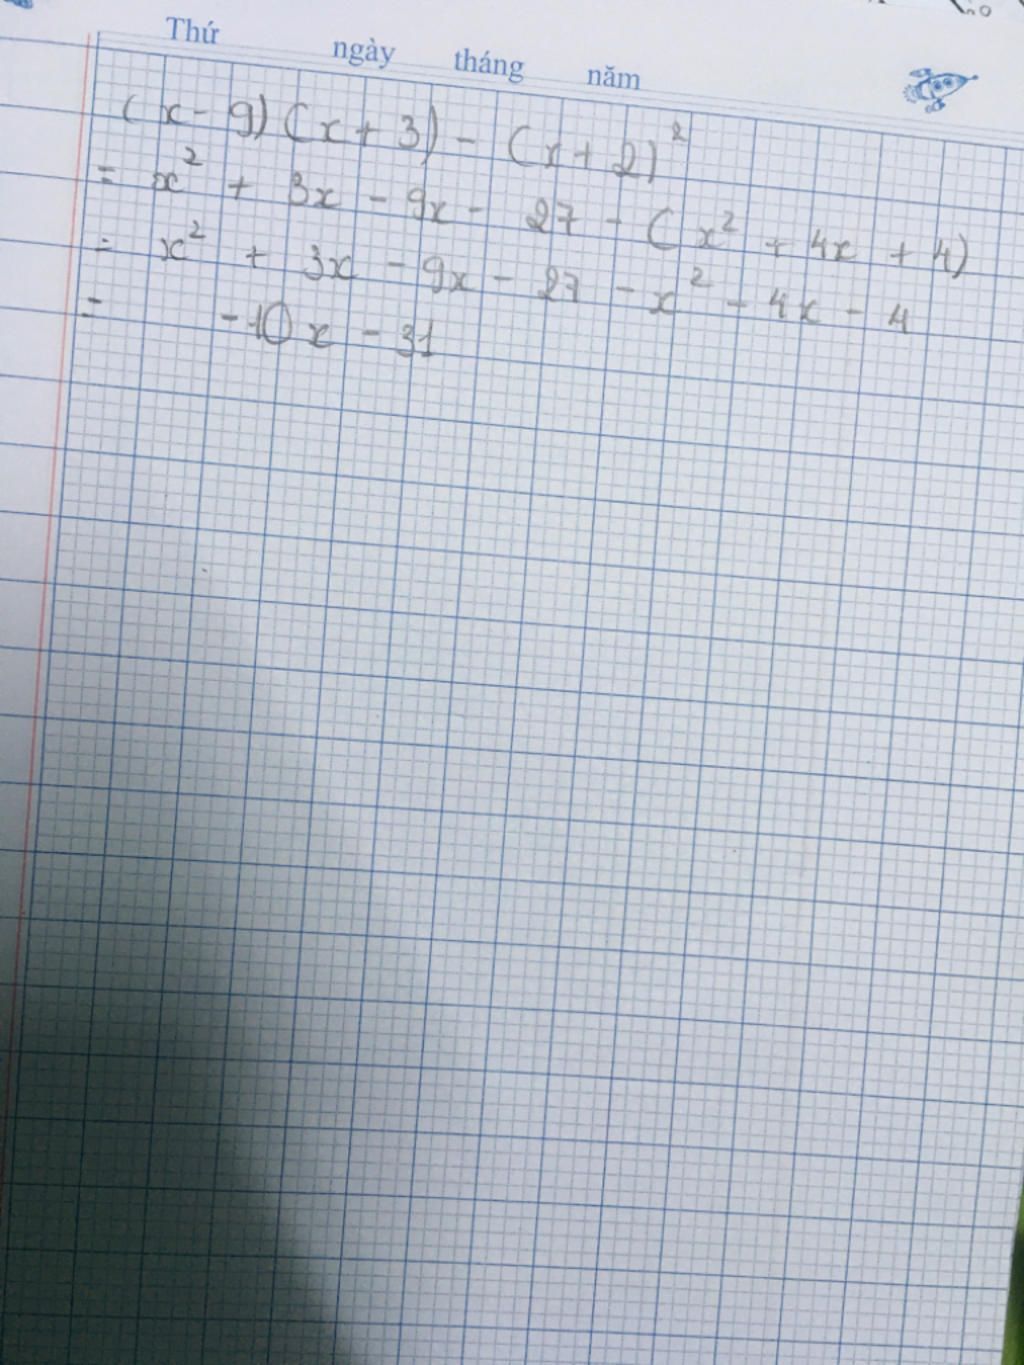 Thứ ngày tháng năm
(x - 9)(x + 3) - (x + 2)²
= x² + 3x - 9x - 27 - (x² + 4x + 4)
= x² + 3x - 9x - 27 - x² - 4x - 4
= -10x - 31